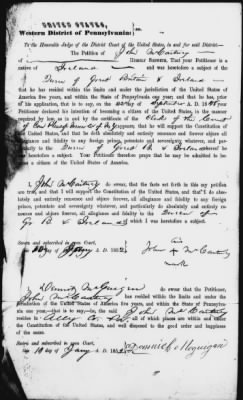 UNITED STATES,
Western District of Pennsylvania: ss.
To the Honorable Judge of the District Court of the United States, in and for said District—
The Petition of John McCarthy
HUMBLY SHEWETH, That your Petitioner is a
native of Ireland and was heretofore a subject of the
Queen of Great Britain & Ireland
that he has resided within the limits and under the jurisdiction of the United States of
America five years, and within the State of Pennsylvania one year; and that he has, prior
of his application, that is to say, on the day of September A. D. 18
Petitioner declared his intention of becoming a citizen of the United States, in the manner
required by law, as will appear by the certificate of the Clerk of the Court
that he will support the Constitution of
the United States, and that he doth absolutely and entirely renounce and forever abjure all
allegiance and fidelity to any foreign prince, potentate and sovereignty whatever, and par-
ticularly to the Queen of G B & Ireland of whom
he was heretofore a subject. Your Petitioner therefore prays that he may be admitted to be-
come a citizen of the United States of America.
I, John McCarthy do swear, that the facts set forth in this my petition
are true, and that I will support the Constitution of the United States, and that I do abso-
lutely and entirely renounce and forever abjure, all allegiance and fidelity to any foreign
prince, potentate and sovereignty whatever, and particularly do absolutely and entirely re-
nounce and abjure forever, all allegiance and fidelity to the Queen of
G B & Ireland of which I was heretofore a subject.
Sworn and subscribed in open Court,
10 Jany A. D. 185
his
John x McCarthy
mark
I, do swear that the Petitioner,
John McCarthy has resided within the limits and under the
jurisdiction of the United States of America five years, and within the State of Pennsylva-
nia one year,—that is to say, he, the said John McCarthy
resides in Alleg Co Pa, all of which places are within and under
the Constitution of the United States, and well disposed to the good order and happiness
of the same.
Sworn and subscribed in open Court,
this 10 day of Jany A. D. 185